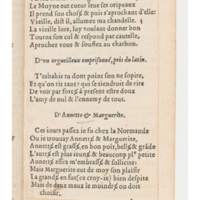 Le Moyne eut cueur
Il prend son choix & puis s'aprochant d'elle:
Vieille, dist il, allumez ma chandelle.
La vieille lors, luy voulant donner bon
Tourne son cul & respond par cautelle,
Aprochez vous & soufflez au charbon.
D'un orgueilleux emprisonné, pris du latin.
T'ubahis tu dont point son ne sopire,
Et qu'on rit tant? qui se tiendroit de rire
De voir par force à present estre doux
L'amy de nul & l'ennemy de tous.
D'Annette & Marguerite.
Ces jours passez je fu chez la Normande
Ou je trouvay Annette & Marguerite,
Annette est grasse, en bon poit, belle & gráde
L'autre est plus jeune & beaucoup petite
Annette assez m'embrase & sollicite:
Mais Marguerite eut de moy son plaisir
La grande en fut (ce croy-ie) bien despite
Mais de deux maux le moindre on doit
choisir.